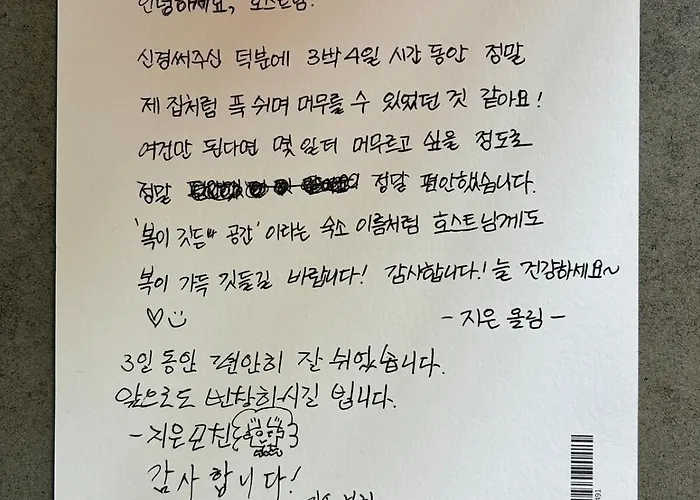 안녕하세요, 호스트님!
신경써주신 덕분에 3박4일 시간동안 정말
제 집처럼 푹 쉬며 머무를 수 있었던 것 같아요!
여건만 된다면 몇 일 더 머무르고 싶을 정도로
정말 정말 편안했습니다.
'복이 깃든 공간' 이라는 숙소 이름처럼 호스트님께도
복이 가득 깃들길 바랍니다! 감사합니다! 늘 건강하세요~
- 지은 올림 -
3일 동안 편안히 잘 쉬었습니다.
앞으로도 번창하시길 빕니다.
- 지은 모친
감사합니다!